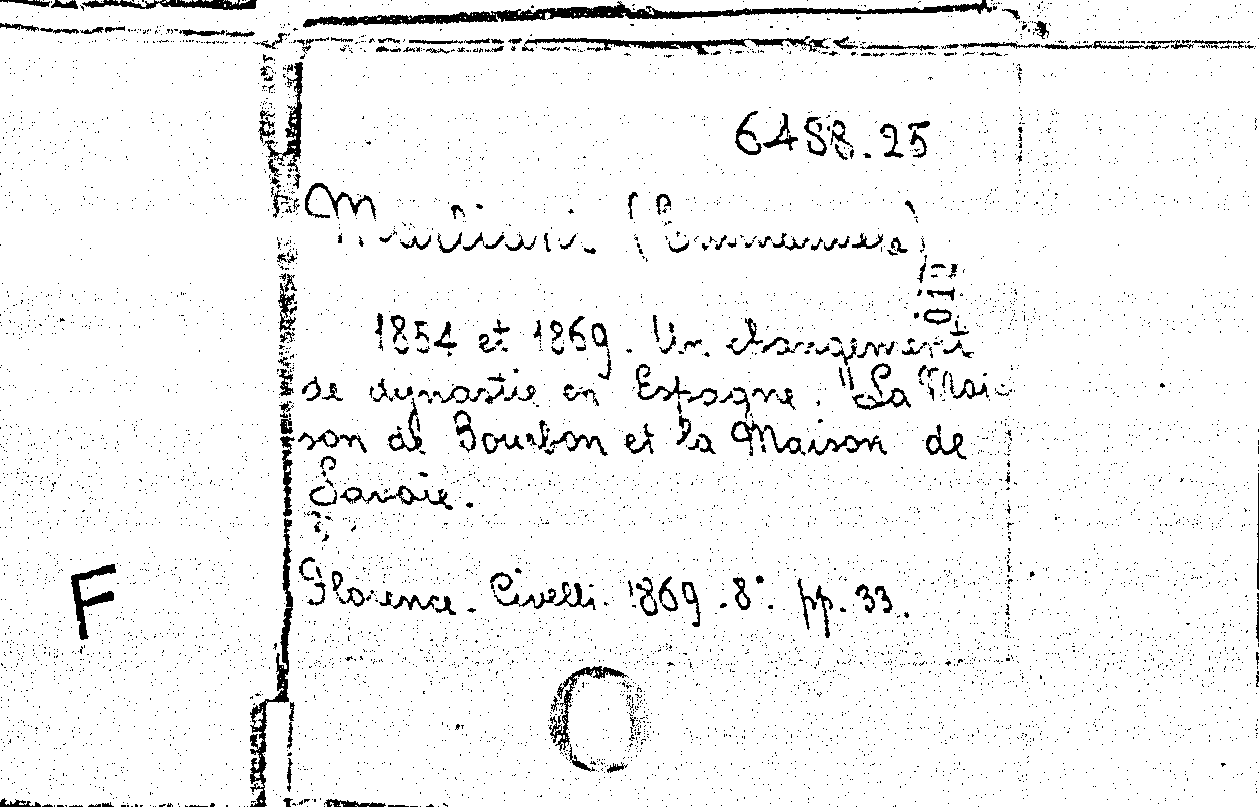 6458.25
Marliani (Emmanuele)
1854 et 1869. Un changement
de dynastie en Espagne. "La Mai-
son de Bourbon et la Maison de
Savoie.
Florence. Civelli. 1869. 8°. pp. 33.
F